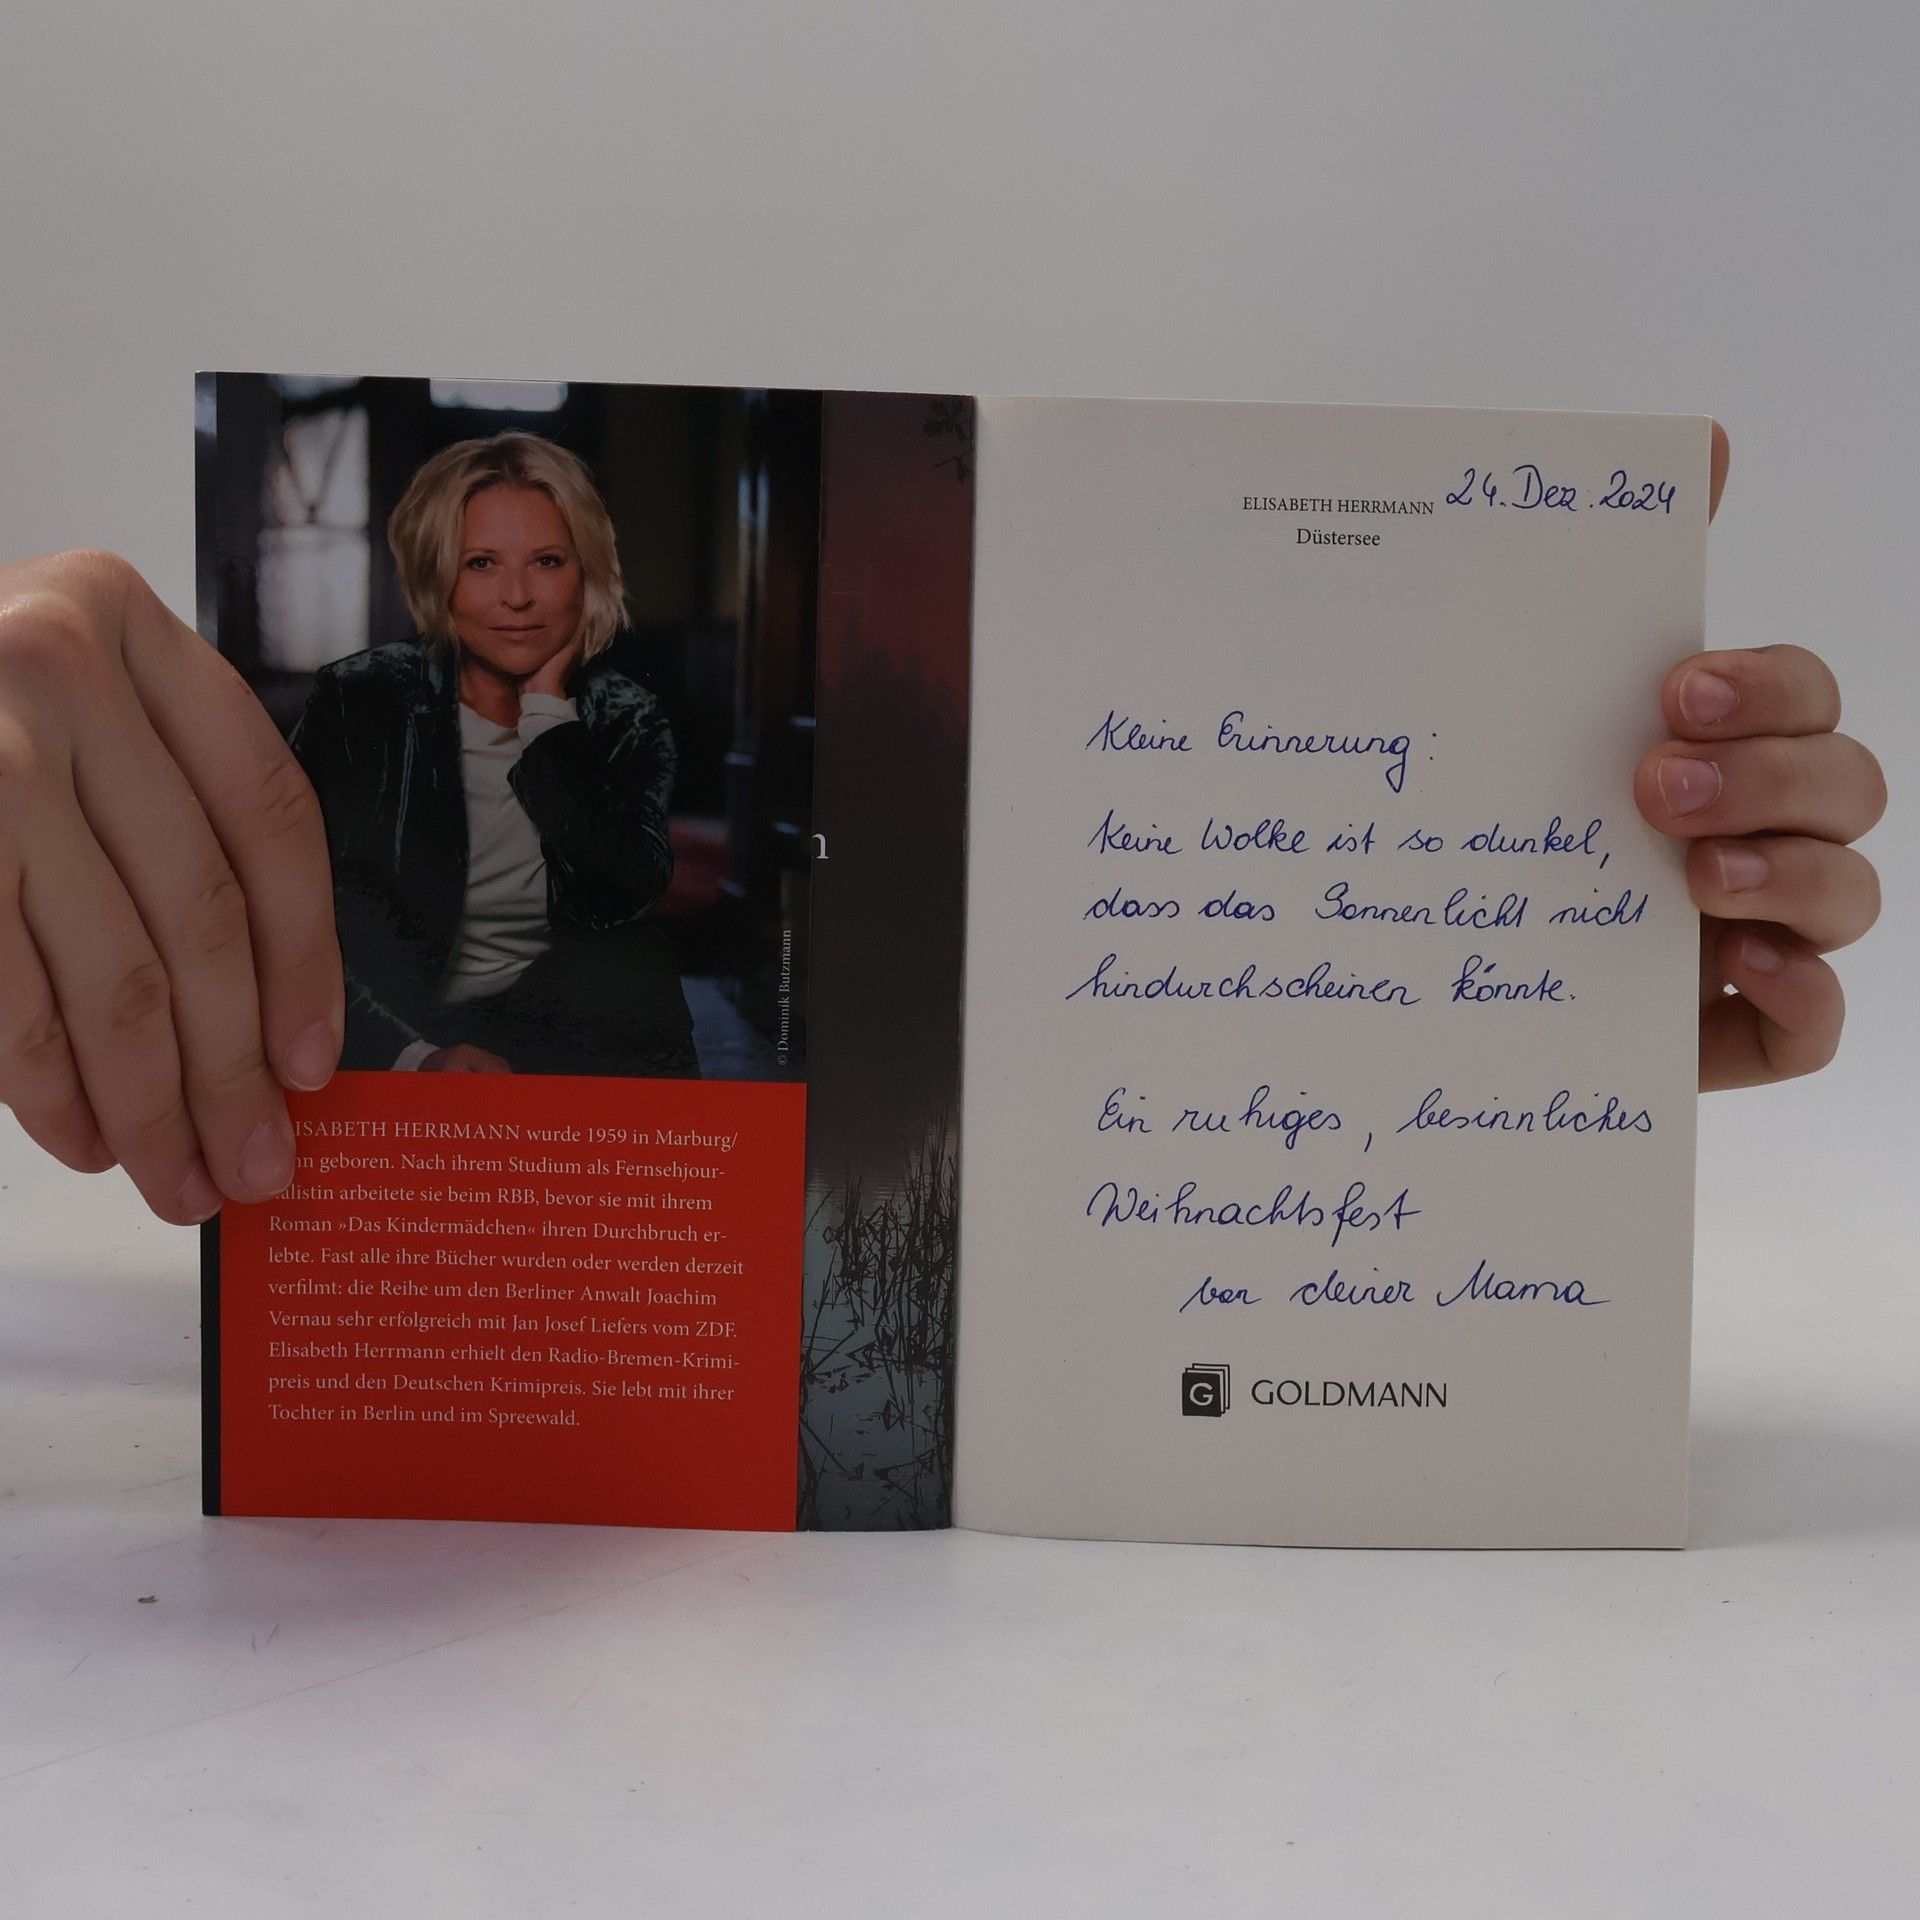 n
© Dominik Butzmann
ISABETH HERRMANN wurde 1959 in Marburg/
geboren. Nach ihrem Studium als Fernsehjour-
alistin arbeitete sie beim RBB, bevor sie mit ihrem
Roman »Das Kindermädchen« ihren Durchbruch er-
lebte. Fast alle ihre Bücher wurden oder werden derzeit
verfilmt: die Reihe um den Berliner Anwalt Joachim
Vernau sehr erfolgreich mit Jan Josef Liefers vom ZDF.
Elisabeth Herrmann erhielt den Radio-Bremen-Krimi-
preis und den Deutschen Krimipreis. Sie lebt mit ihrer
Tochter in Berlin und im Spreewald.
ELISABETH HERRMANN 24. Dez. 2024
Düstersee
Kleine Erinnerung:
Keine Wolke ist so dunkel,
dass das Sonnenlicht nicht
hindurchscheinen könnte.
Ein ruhiges, besinnliches
Weihnachtsfest
von deiner Mama
G GOLDMANN